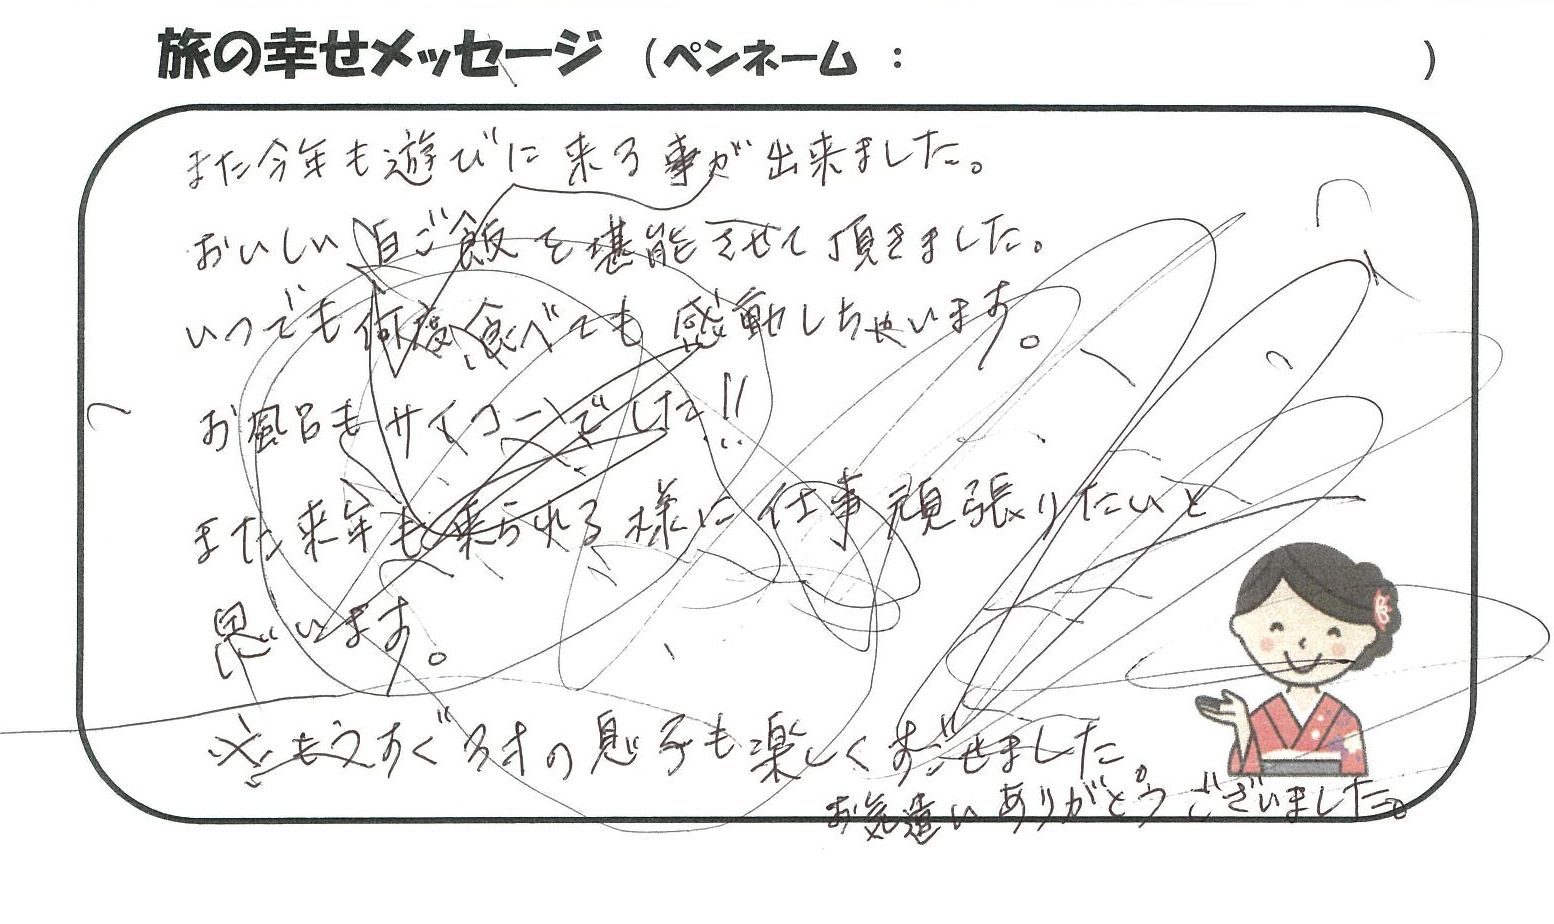 旅の幸せメッセージ （ペンネーム ： ）
また今年も遊びに来る事が出来ました。
おいしい白ご飯を堪能させて頂きました。
いつでも何度食べても感動しちゃいます。
お風呂もサイコーでした!!
また来年も来られる様に仕事頑張りたいと
思います。
※もうすぐ3才の息子も楽しくすごせました
お気遣いありがとうございました。